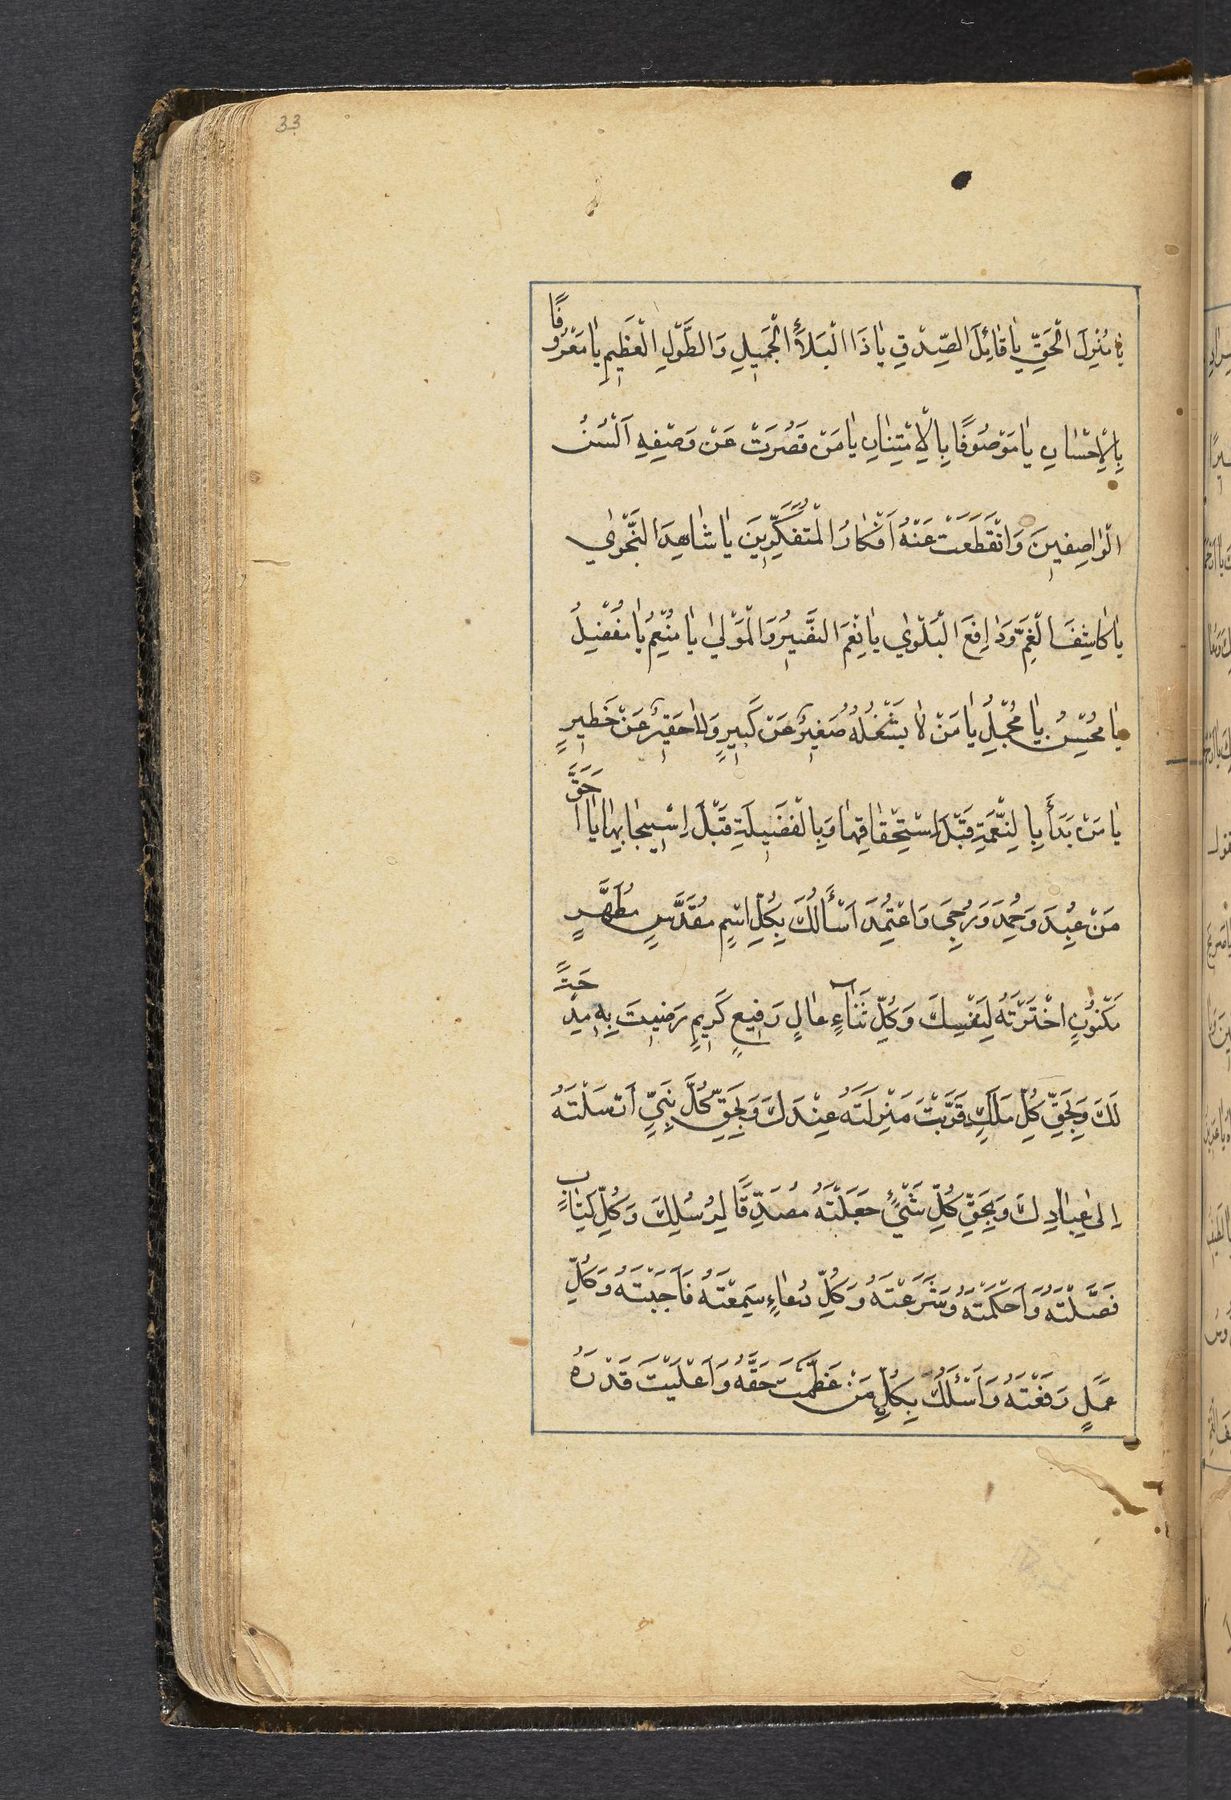 33
يا مُنْزِلَ الْحَقِّ يا قائِلَ الصِّدْقِ يا ذَا الْبَلاءِ الْجَميلِ وَالطَّوْلِ الْعَظيمِ يا مَعْرُوفًا
بِالْاِحْسانِ يا مَوْصُوفًا بِالْاِمْتِنانِ يا مَنْ قَصُرَتْ عَنْ وَصْفِهِ اَلْسُنُ
الْواصِفينَ وَانْقَطَعَتْ عَنْهُ اَفْكارُ الْمُتَفَكِّرينَ يا شاهِدَ النَّجْوٰي
يا كاشِفَ الْغَمِّ وَدافِعَ الْبَلْوٰي يا نِعْمَ النَّصيرُ وَالْمَوْلٰي يا مُنْعِمُ يا مُفْضِلُ
يا مُحْسِنُ يا مُجْمِلُ يا مَنْ لا يَشْغَلُهُ صَغيرٌ عَنْ كَبيرٍ وَلا حَقيرٌ عَنْ خَطيرٍ
يا مَنْ بَدَأَ بِالنِّعْمَةِ قَبْلَ اسْتِحْقاقِها وَبِالْفَضيلَةِ قَبْلَ اسْتيجابِها يا اَحَقَّ
مَنْ عُبِدَ وَحُمِدَ وَرُجِيَ وَاعْتُمِدَ اَسْأَلُكَ بِكُلِّ اسْمٍ مُقَدَّسٍ مُطَهَّرٍ
مَكْنُونٍ اخْتَرْتَهُ لِنَفْسِكَ وَكُلِّ ثَناءٍ عالٍ رَفيعٍ كَريمٍ رَضيتَ بِهِ مِدْحَتًا
لَكَ وَبِحَقِّ كُلِّ مَلَكٍ قَرَّبْتَ مَنْزِلَتَهُ عِنْدَكَ وَبِحَقِّ كُلِّ نَبِيٍّ اَرْسَلْتَهُ
اِلٰي عِبادِكَ وَبِحَقِّ كُلِّ شَيْءٍ جَعَلْتَهُ مُصَدِّقًا لِرُسُلِكَ وَكُلِّ كِتابٍ
فَصَّلْتَهُ وَاَحْكَمْتَهُ وَشَرَعْتَهُ وَكُلِّ دُعاءٍ سَمِعْتَهُ فَاَجَبْتَهُ وَكُلِّ
عَمَلٍ رَفَعْتَهُ وَاَسْئَلُكَ بِكُلِّ مَنْ عَظَّمْتَ حَقَّهُ وَاَعْلَيْتَ قَدْرَهُ